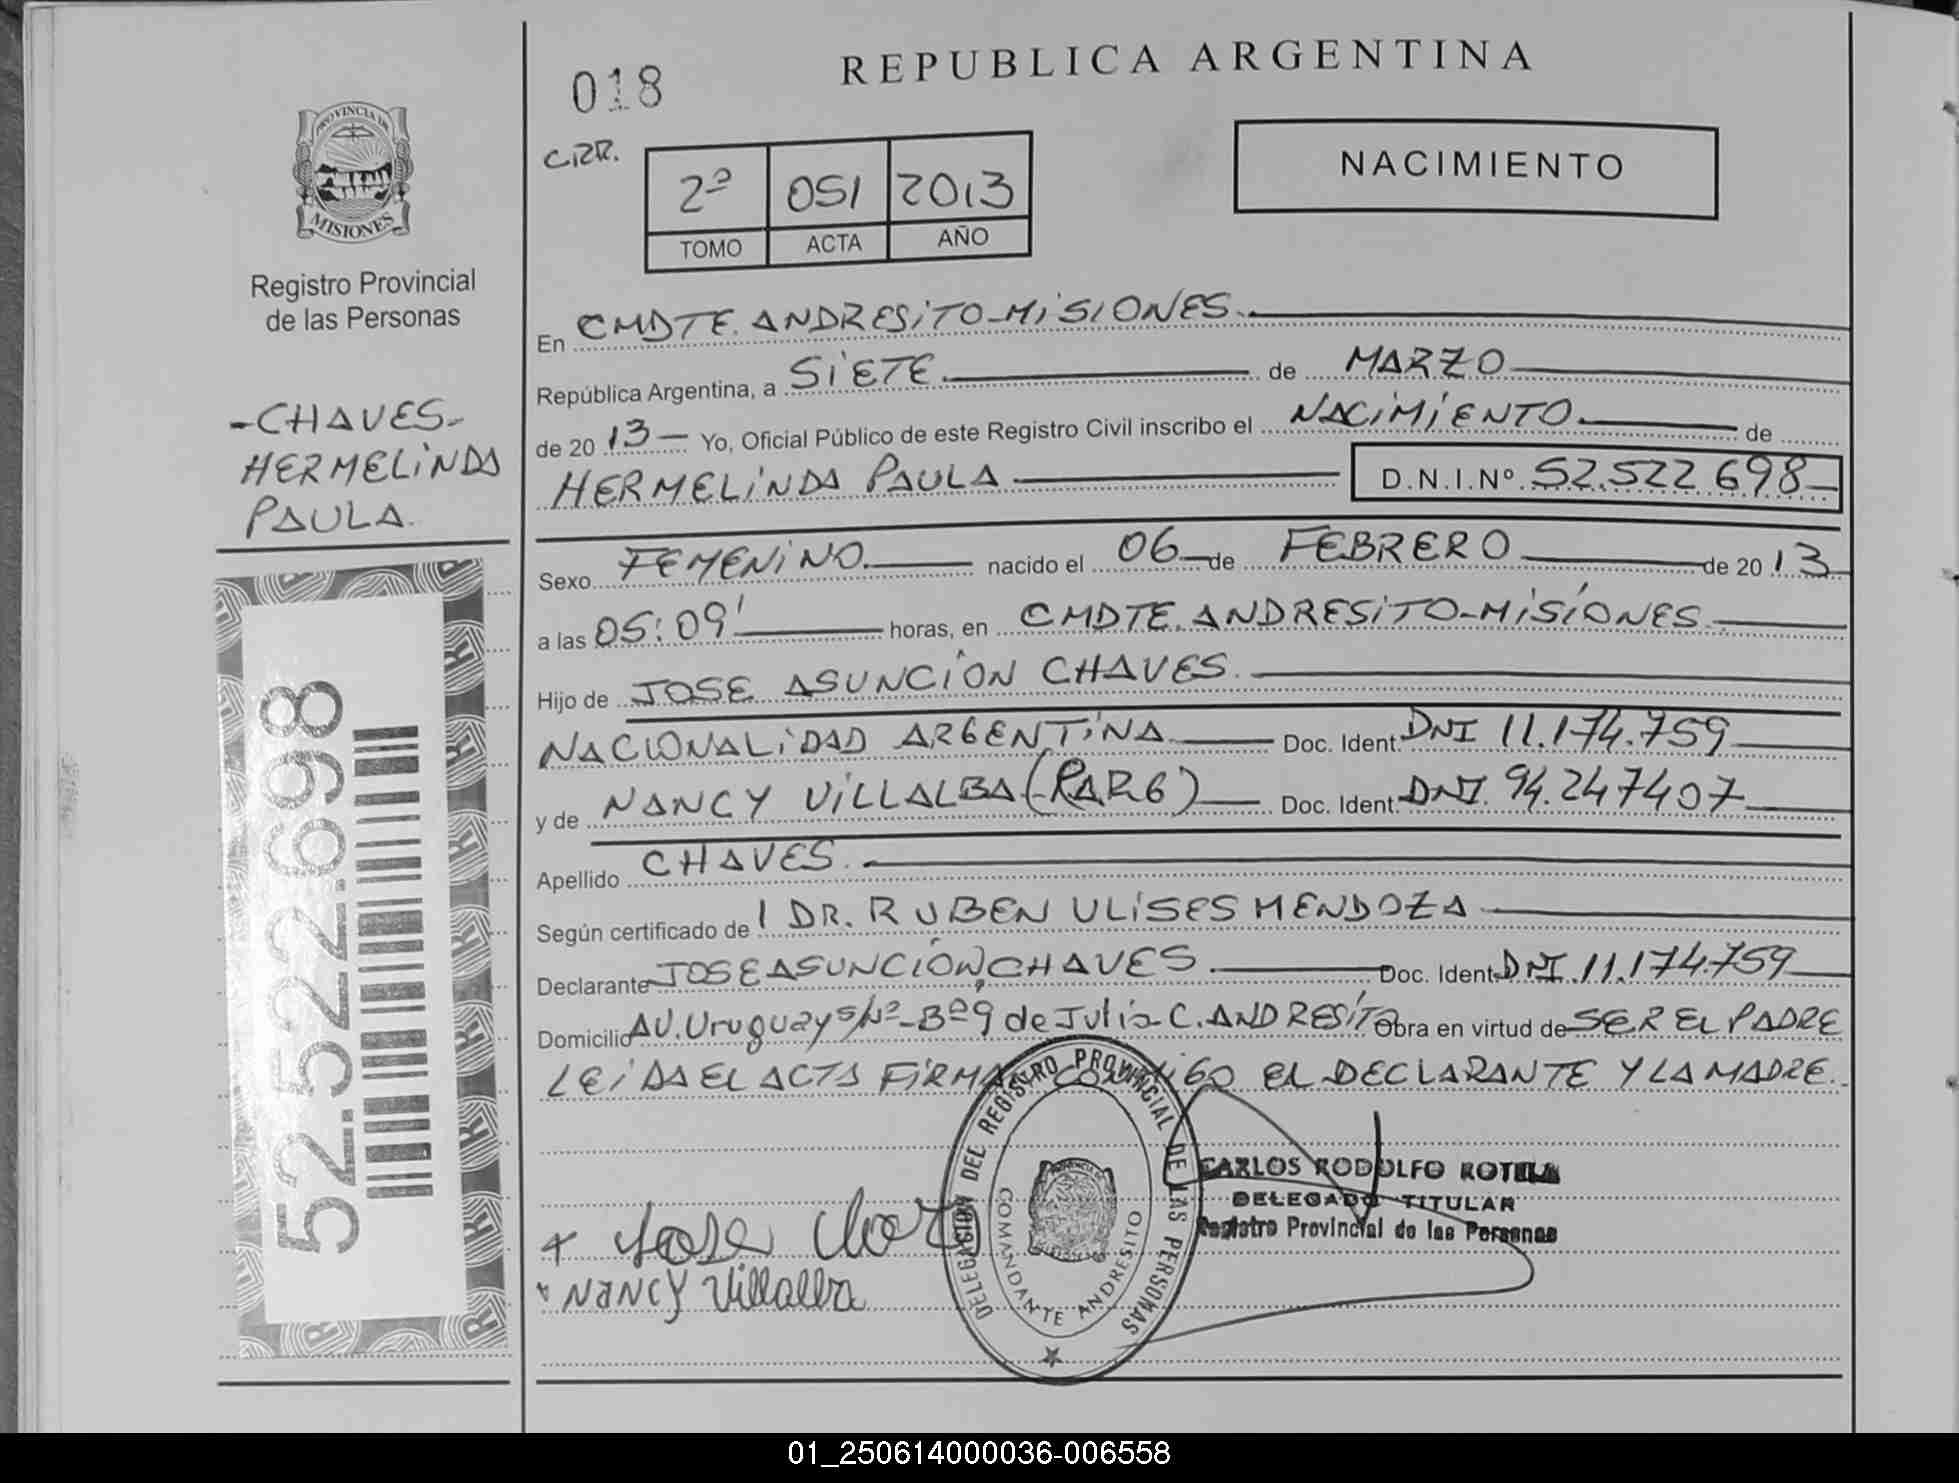 018
REPUBLICA ARGENTINA
CIRR.
2º 051 2013
TOMO ACTA AÑO
NACIMIENTO
PROVINCIA DE
MISIONES
Registro Provincial
de las Personas
-CHAVES-
HERMELINDA
PAULA.
52.522.698
En CMDTE. ANDRESITO-MISIONES.
República Argentina, a SIETE. de MARZO
de 20 13 Yo, Oficial Público de este Registro Civil inscribo el NACIMIENTO de
HERMELINDA PAULA D.N.I.Nº. 52.522 698
Sexo FEMENINO. nacido el 06 de FEBRERO de 20 13
a las 05:09' horas, en CMDTE. ANDRESITO-MISIONES.
Hijo de JOSE ASUNCION CHAVES.
NACIONALIDAD ARGENTINA Doc. Ident. DNI 11.174.759
y de NANCY VILLALBA (PARG) Doc. Ident. DNI. 94.247407
Apellido CHAVES.
Según certificado de l DR. RUBEN ULISES MENDOZA
Declarante JOSE ASUNCION CHAVES. Doc. Ident. DNI. 11.174.759
Domicilio AV. Uruguay s/Nº-Bº 9 de Julio-C. ANDRESITO Obra en virtud de SER EL PADRE
LEIDA EL ACTA FIRMAN CONMIGO EL DECLARANTE Y LA MADRE.
DELEGACION DEL REGISTRO PROVINCIAL DE LAS PERSONAS
COMANDANTE ANDRESITO
CARLOS RODOLFO ROTELA
DELEGADO TITULAR
Registro Provincial de las Personas
Jose Chavez
Nancy Villalba
01_250614000036-006558